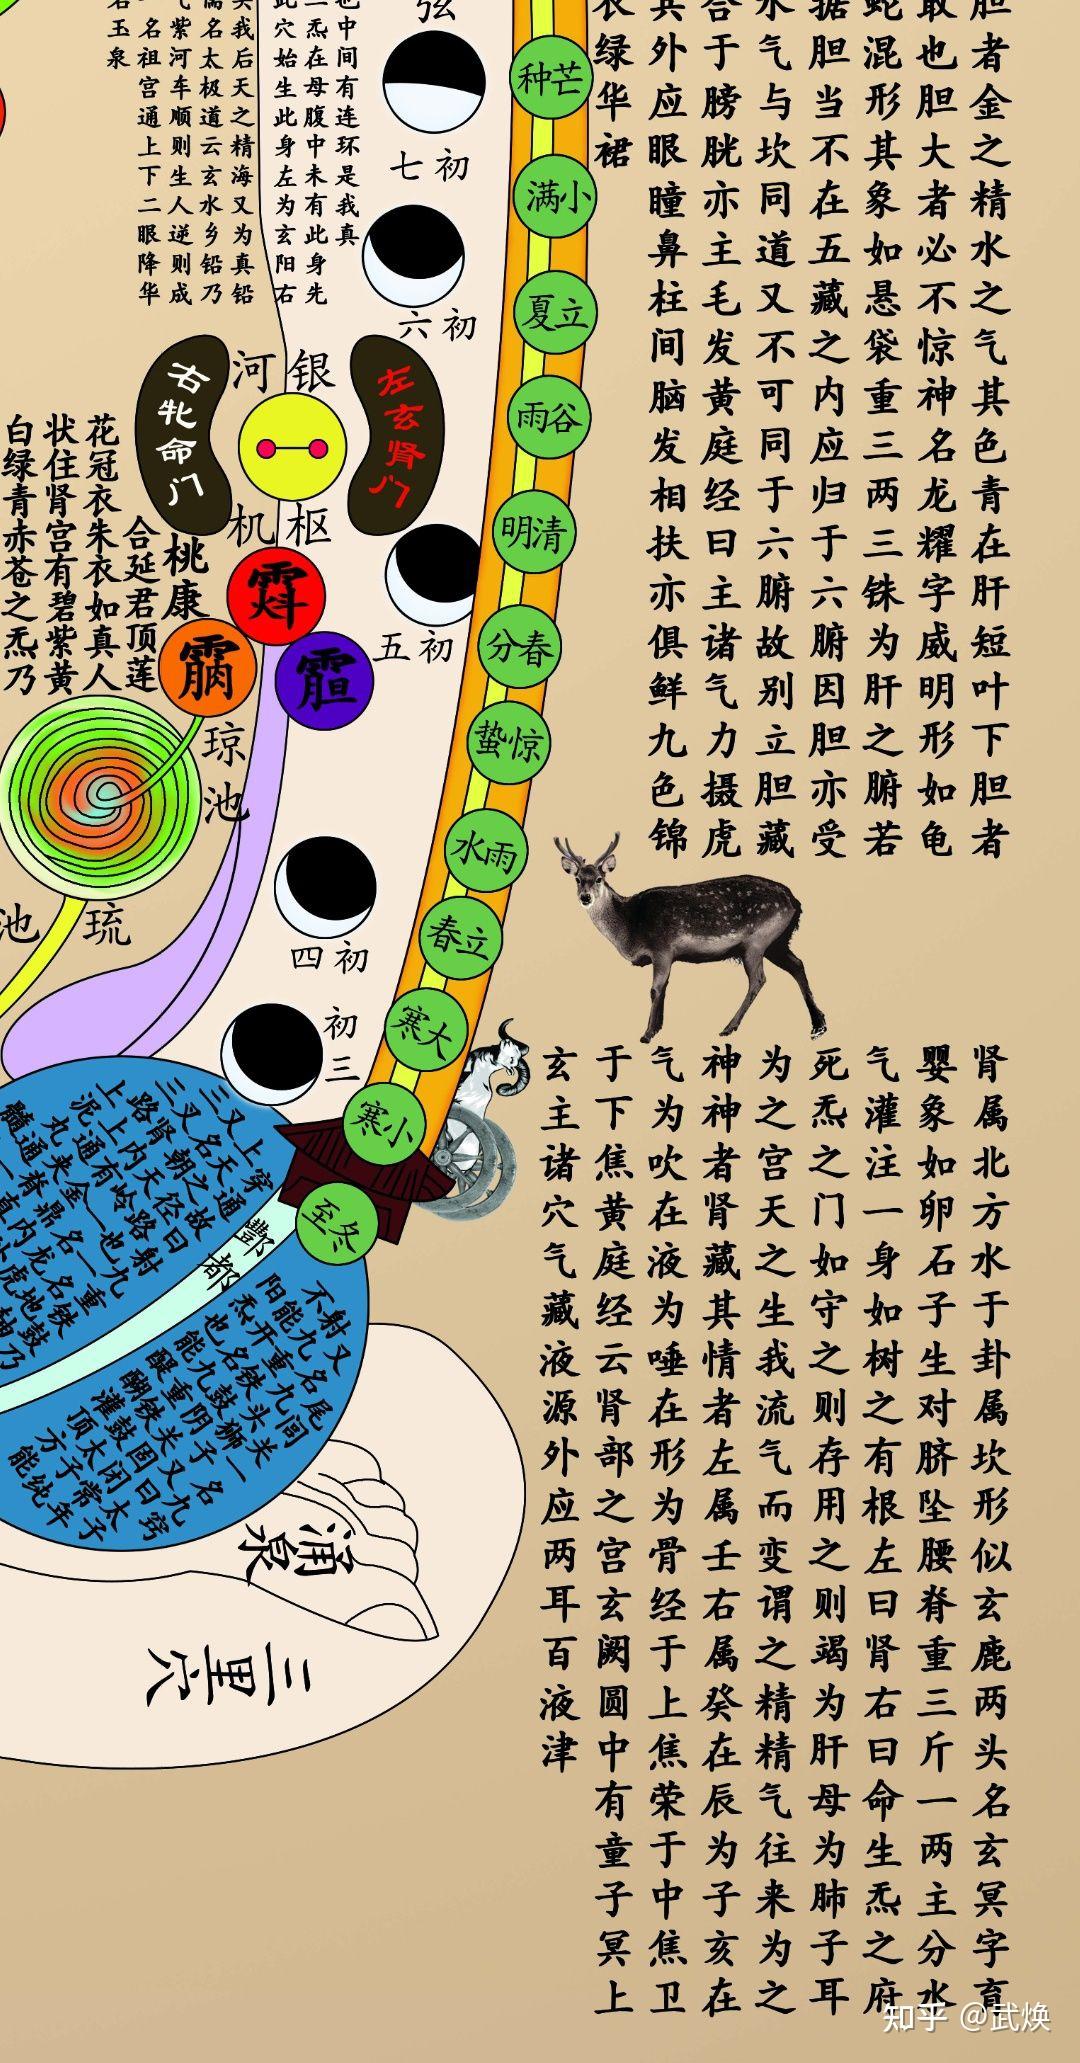 胆者金之精水之气其色青在肝短叶下胆者
敢也胆大者必不惊神名龙耀字威明形如龟
蛇混形其象如悬袋重三两三铢为肝之腑若
据胆当不在五藏之内应归于六腑因胆亦受
水气与坎同道又不可同于六腑故别立胆藏
合于膀胱亦主毛发黄庭经曰主诸气力摄虎
兵外应眼瞳鼻柱间脑发相扶亦俱鲜九色锦
衣绿华裙
肾属北方水于卦属坎形似玄鹿两头名玄冥字育
婴象如卵石子生对脐坠腰脊重三斤一两主分水
气灌注一身如树之有根左曰肾右曰命生炁之府
死炁之门如守之则存用之则竭为肝母为肺子耳
为之宫天之生我流气而变谓之精精气往来为之
神神者肾藏其情者左属壬右属癸在辰为子亥在
气为吹在液为唾在形为骨经于上焦荣于中焦卫
于下焦黄庭经云肾部之宫玄阙圆中有童子冥上
玄主诸穴气藏液源外应两耳百液津
芒种
小满
立夏
谷雨
清明
春分
惊蛰
雨水
立春
大寒
小寒
冬至
弦
初七
初六
初五
初四
初三
也中间有连环是我真
二炁在母腹中未有此身先
此穴始生此身左为玄阳右
我后天之精海又为真铅
儒名太极道云玄水乡铅乃
气紫河车顺则生人逆则成
名祖宫通上下二眼降华
玉泉
银河
左玄肾门
右牝命门
枢机
桃康
合延君顶莲
花冠衣朱衣如真人
状住肾宫有碧紫黄
白绿青赤苍之炁乃
琼池
琉池
酆都
涌泉
三里穴
知乎 @武焕